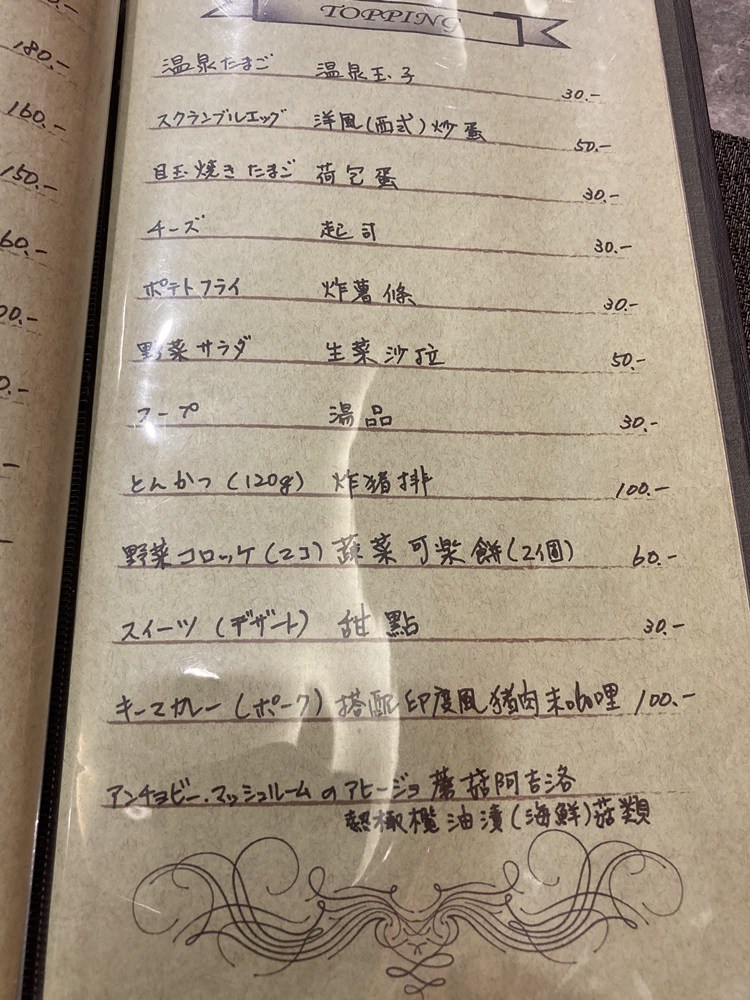 180.-
160.-
150.-
60.-
00.-
0.-
TOPPING
温泉たまご 温泉玉子 30.-
スクランブルエッグ 洋風(西式)炒蛋 50.-
目玉焼きたまご 荷包蛋 30.-
チーズ 起司 30.-
ポテトフライ 炸薯條 30.-
野菜サラダ 生菜沙拉 50.-
スープ 湯品 30.-
とんかつ(120g) 炸豬排 100.-
野菜コロッケ(2コ) 蔬菜可樂餅(2個) 60.-
スイーツ(デザート) 甜點 30.-
キーマカレー(ポーク) 搭配印度風豬肉末咖哩 100.-
アンチョビー.マッシュルームのアヒージョ 蘑菇阿吉洛
熱橄欖油漬(海鮮)菇類